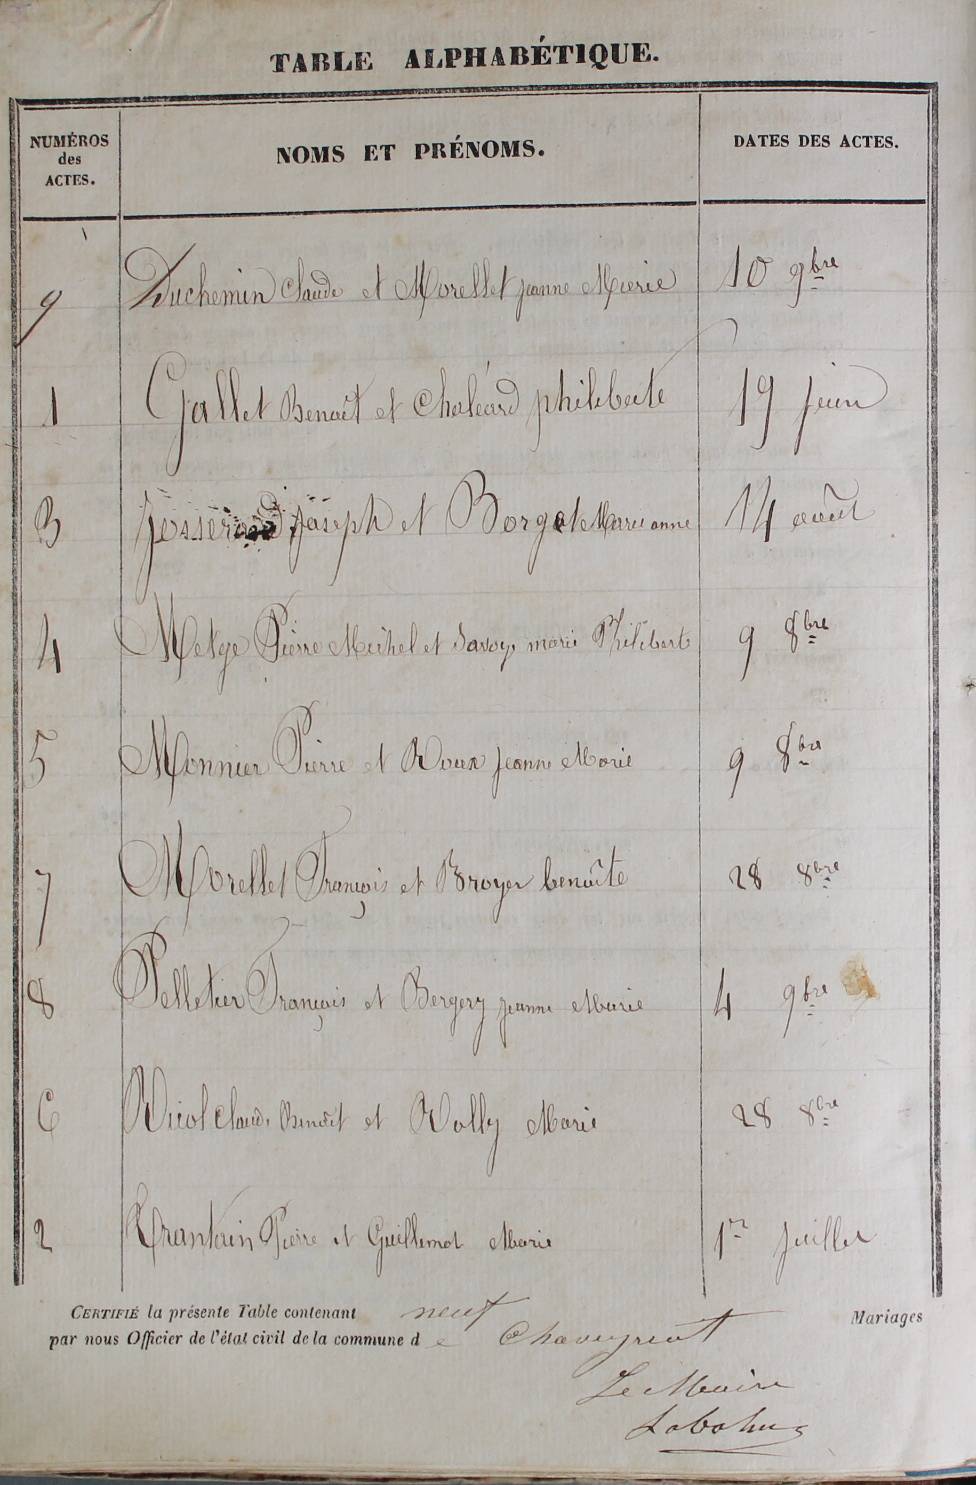 TABLE ALPHABÉTIQUE.
NUMÉROS
des
ACTES.
NOMS ET PRÉNOMS.
DATES DES ACTES.
9 Duchemin Claude et Morellet jeanne Marie 10 9bre
1 Gallet Benoît et Chaléard philiberte 19 juin
3 Josserand Joseph et Borget Marie anne 14 août
4 Metge Pierre Michel et Savoye marie Philiberte 9 8bre
5 Monnier Pierre et Roux Jeanne Marie 9 8bre
7 Morellet François et Broyer benoîte 28 8bre
8 Pelletier François et Bergery jeanne Marie 4 9bre
6 Ricol Claude Benoît et Rolly Marie 28 8bre
2 Trantain Pierre et Guillemot Marie 1er Juillet
CERTIFIÉ la présente Table contenant neuf Mariages
par nous Officier de l'état civil de la commune de Chaveyriat
Le Maire